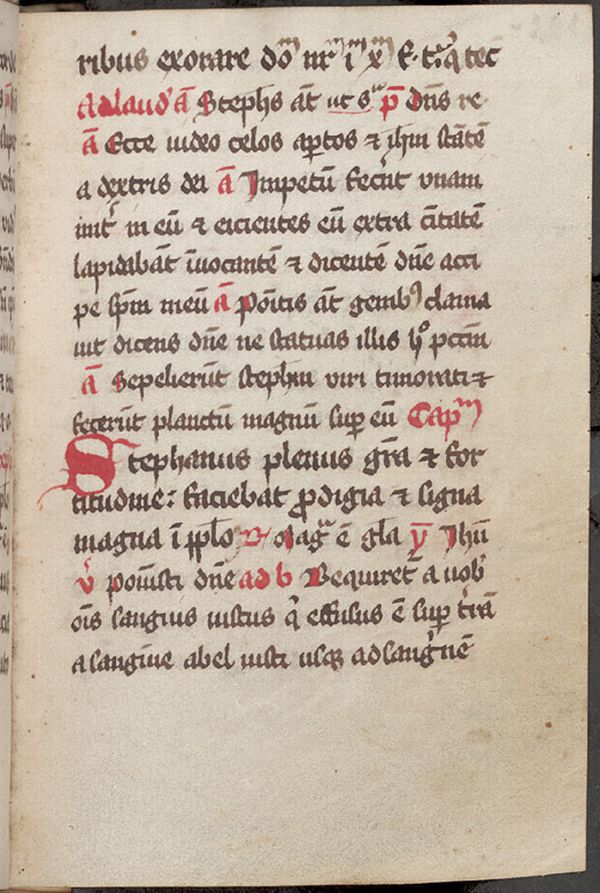 ribus exorare dōm nr̄m īm xm f. t. q̇ tec
Ad laud' ā Stephs āt ut sm p̄ Dn̄s re
ā Ecce uideo celos ap̱tos ⁊ ihm stātē
a dextris dei ā Impetū fecūt vnam
imt̄ in eū ⁊ eicientes eū extra ciͥtatē
lapidabāt īuocantē ⁊ dicentē dn̄e acci
pe sp̄m meū ā Poītis āt genibꝰ clama
uit dicens dn̄e ne statuas illis hͦ pcc̄m
ā Sepelierūt stephm viri timorati ⁊
fecerūt planctū magnū sup̱ eū Capm
Stephanus plenus gr̄a ⁊ for
titudine: faciebat ꝓdigia ⁊ signa
magna ī pp̱lo ē gl̄a v̄ Ihm̄
v̄ Poīusti dn̄e ad b Requiret̄ a uob'
oīs sangius iustus qͥ effusus ē sup̱ t̄rā
a sangīne abel iusti usqꝫ ad sangͥnē